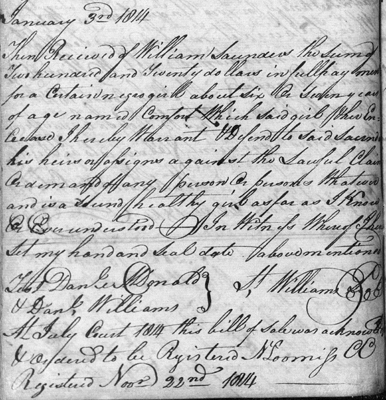 January 3rd 1814
Then Recieved of William Saunders the sum of
Two hundred and Twenty dollars in full payment
for a Certain negro girl about six or Seven years
of age named Comfort Which said girl
I hereby Warrant & Defend to said Saunders
his heirs or asigns against the Lawful Claim
or demand of any person or persons whatsoever
and is a Sound healthy girl as far as I know
or Ever understood In Witness Whereof I have
set my hand and seal date above mentioned
Test Daniel McDonald St Williams Seal
& Danl Williams
At July Court 1814 this bill of sale was acknowd
& ordered to be Rigistered N Loomiss CC
Registered Novr 22nd 1814